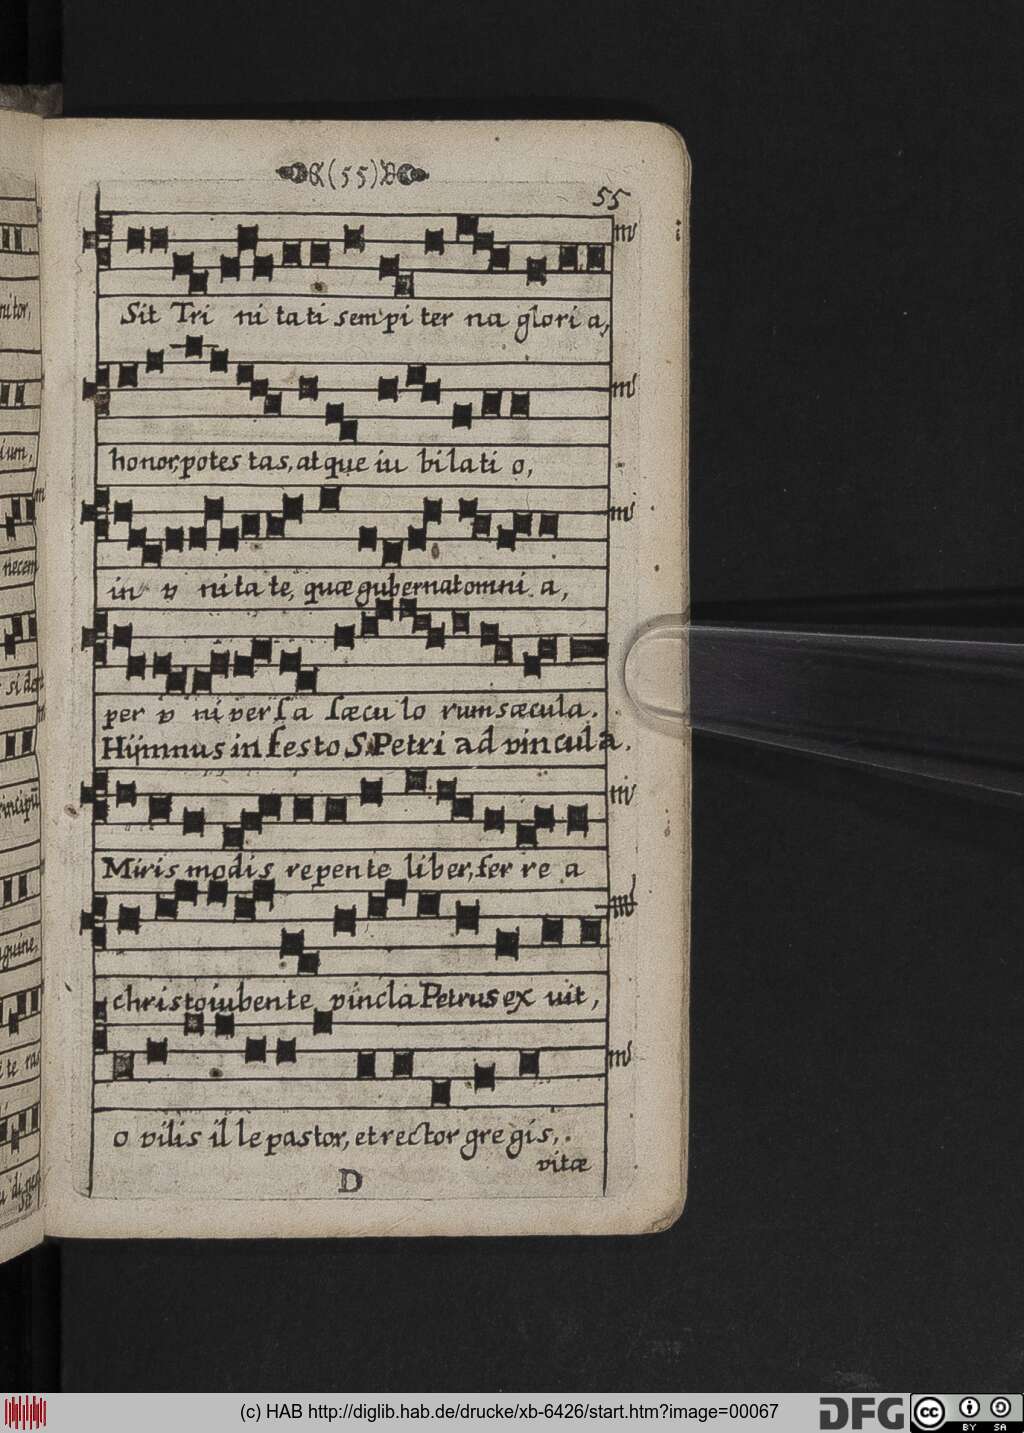 (55)
55
Sit Tri ni ta ti sem pi ter na glori a,
honor, potes tas, at que iu bi lati o,
in v ni ta te, quæ gubernat omni a,
per v ni versa sæcu lo rum sæcula.
Hÿmnus in festo S. Petri ad vincula.
Miris modis repente liber, fer re a
christo iubente vincla Petrus ex uit,
o vilis il le pastor, et rector gre gis,.
vitæ
D
nitor,
ium,
necem
side
rincipū
guine,
te ras
(c) HAB http://diglib.hab.de/drucke/xb-6426/start.htm?image=00067
DFG
cc
BY SA